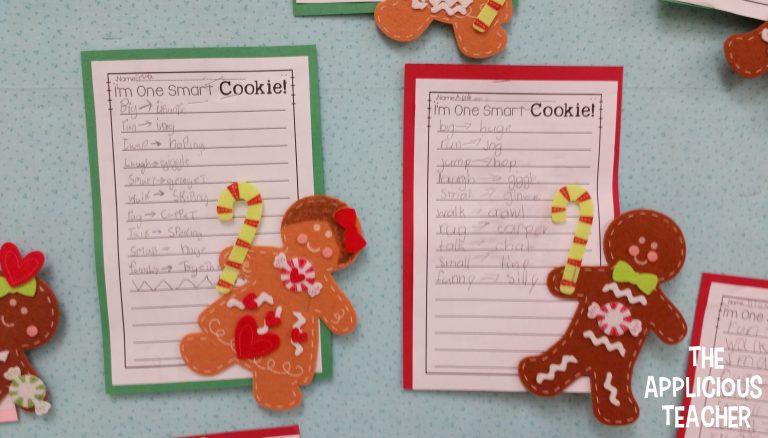 Name:
I'm One Smart Cookie!
Big → 
run → jog
jump → hoping
laugh → giggle
Smart →
walk → Skiping
rug → Carpet
Talk → Speking
Small → huge
funny →
Name:
I'm One Smart Cookie!
big → huge
run → jog
jump → hop
laugh → giggle
Smart →
walk → crawl
rug → carper
talk → chat
Small →
funny → silly
I'm One
run
walk
THE
APPLICIOUS
TEACHER